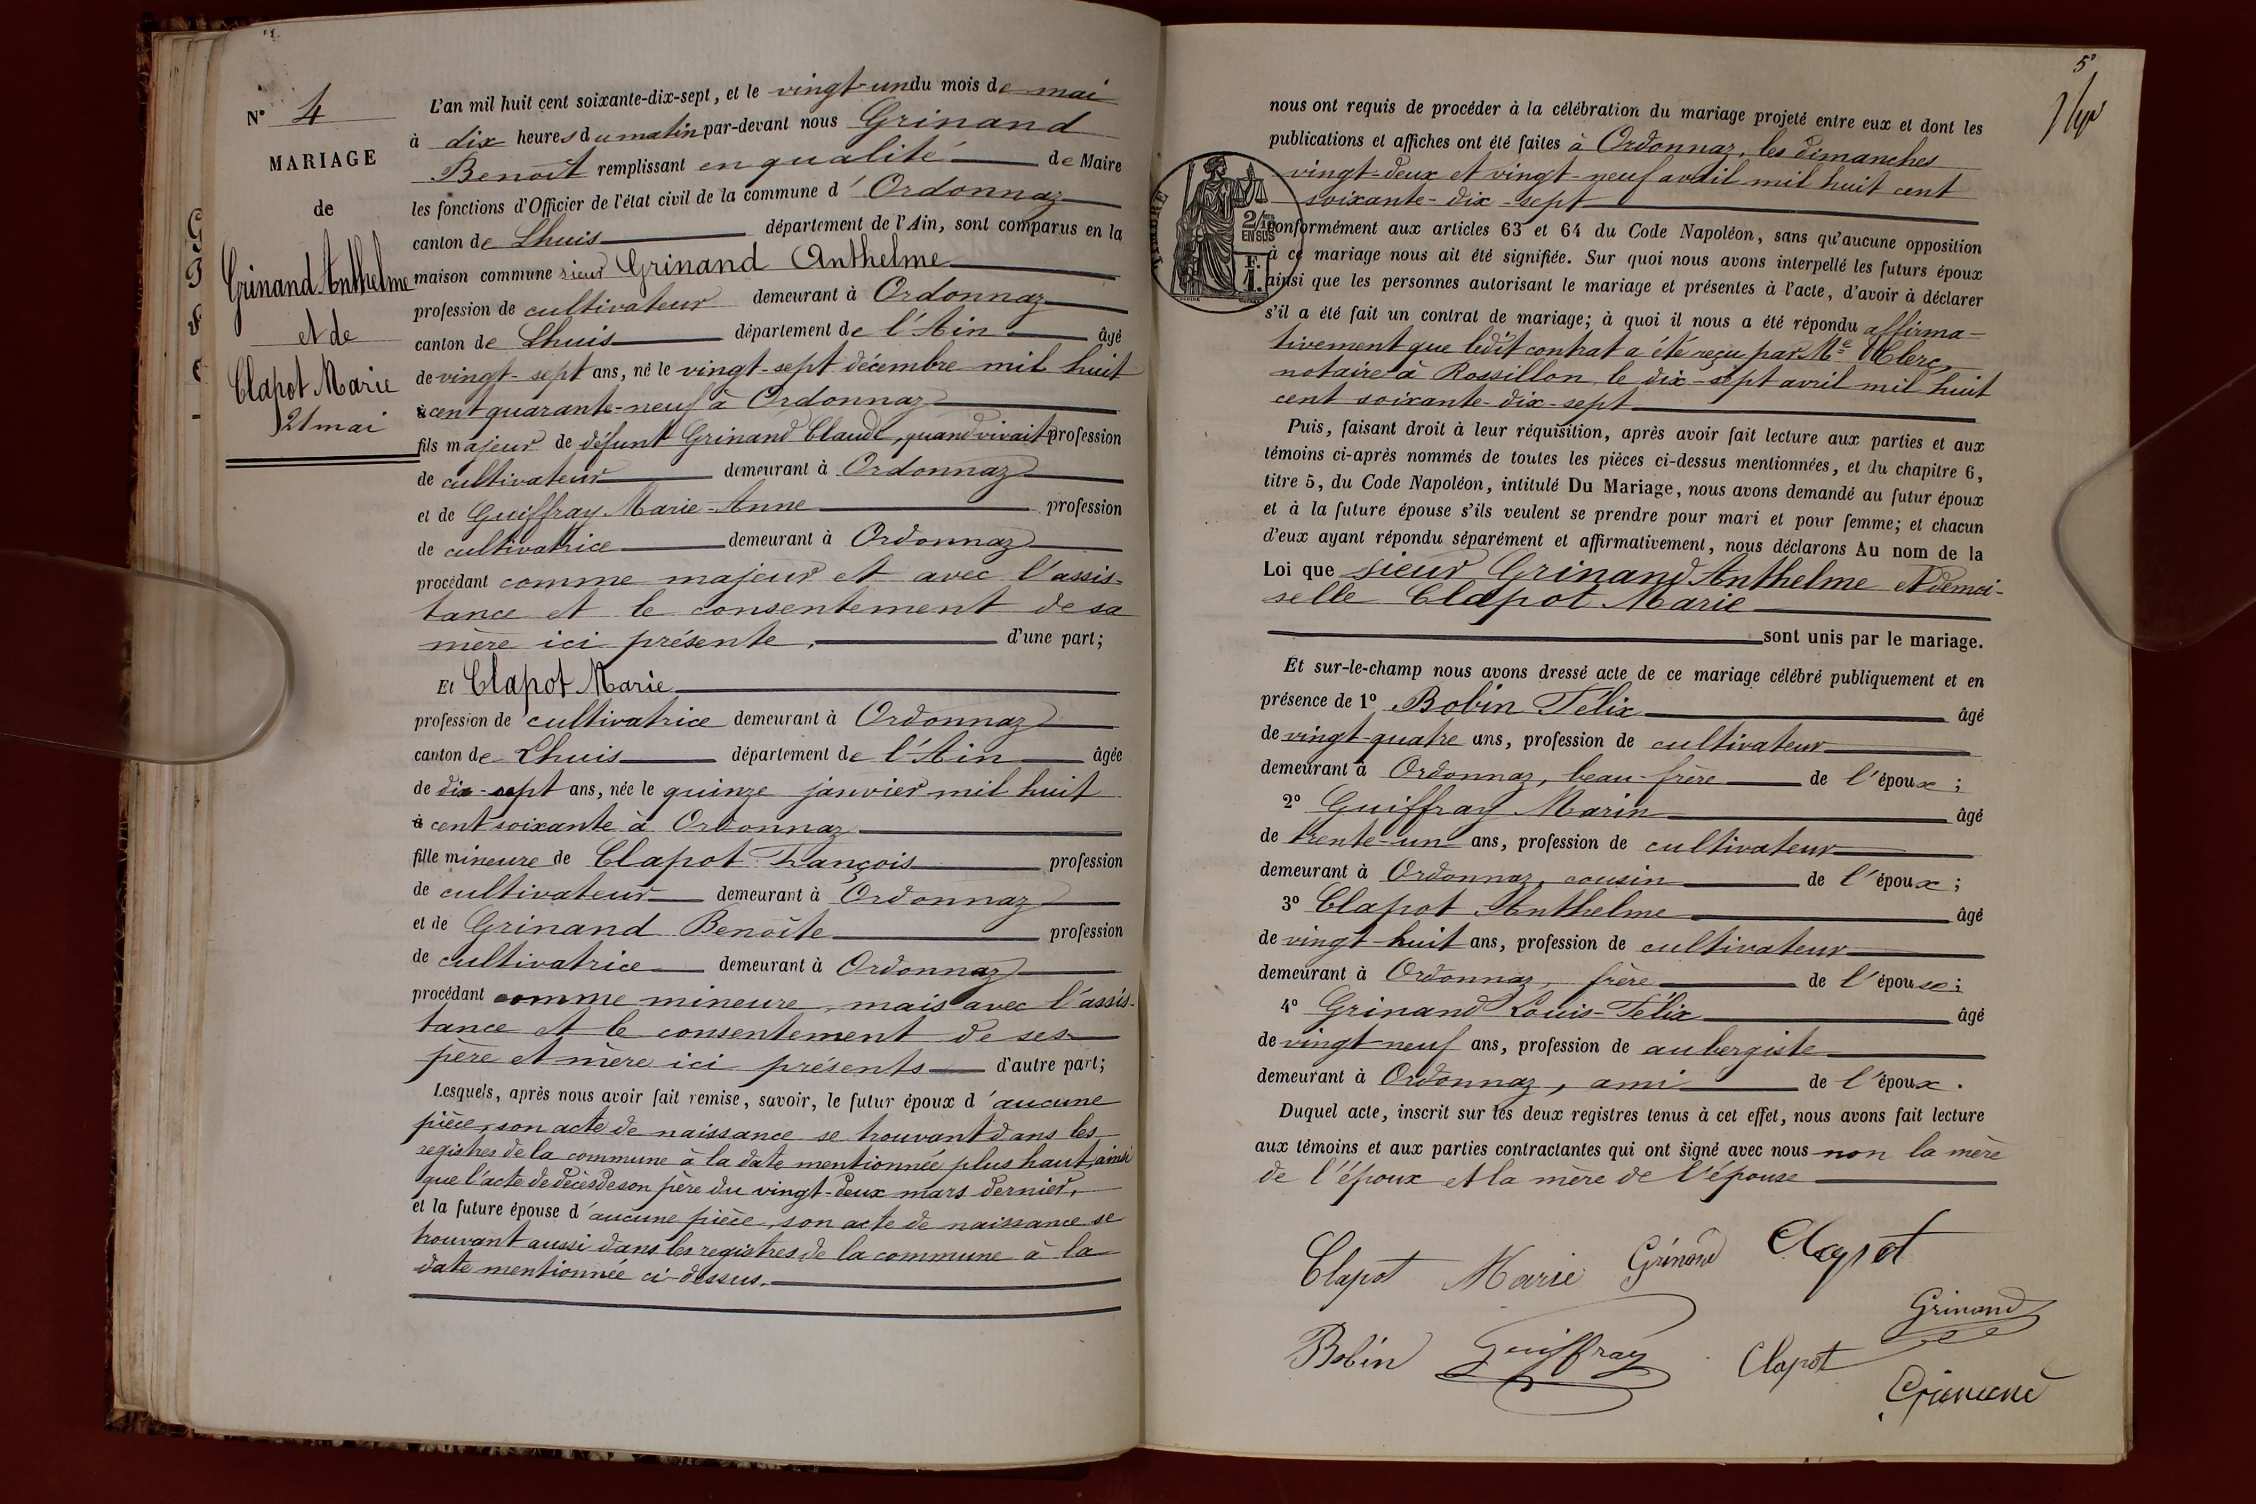 N° 4
MARIAGE
de
Grinand Anthelme
et de
Clapot Marie
21 mai
L'an mil huit cent soixante-dix-sept, et le vingt-un du mois de mai
à dix heures du matin par-devant nous Grinand
Benoît remplissant en qualité de Maire
les fonctions d'Officier de l'état civil de la commune d'Ordonnaz
canton de Lhuis département de l'Ain, sont comparus en la
maison commune sieur Grinand Anthelme
profession de cultivateur demeurant à Ordonnaz
canton de Lhuis département de l'Ain âgé
de vingt-sept ans, né le vingt-sept décembre mil huit
à cent quarante-neuf à Ordonnaz
fils majeur de défunt Grinand Claude, quand vivait profession
de cultivateur demeurant à Ordonnaz
et de Guiffray Marie-Anne profession
de cultivatrice demeurant à Ordonnaz
procédant comme majeur et avec l'assis-
tance et le consentement de sa
mère ici présente, d'une part;
Et Clapot Marie
profession de cultivatrice demeurant à Ordonnaz
canton de Lhuis département de l'Ain âgée
de dix-sept ans, née le quinze janvier mil huit
à cent soixante à Ordonnaz
fille mineure de Clapot François profession
de cultivateur demeurant à Ordonnaz
et de Grinand Benoîte profession
de cultivatrice demeurant à Ordonnaz
procédant comme mineure, mais avec l'assis-
tance et le consentement de ses
père et mère ici présents d'autre part;
Lesquels, après nous avoir fait remise, savoir, le futur époux d'aucune
pièce, son acte de naissance se trouvant dans les
registres de la commune à la date mentionnée plus haut, ainsi
que l'acte de décès de son père du vingt-deux mars dernier,
et la future épouse d'aucune pièce, son acte de naissance se
trouvant aussi dans les registres de la commune à la
date mentionnée ci-dessus.
5
nous ont requis de procéder à la célébration du mariage projeté entre eux et dont les
publications et affiches ont été faites à Ordonnaz, les dimanches
vingt-deux et vingt-neuf avril mil huit cent
soixante-dix-sept
TIMBRE
2/10es
EN SUS
F.
1.
conformément aux articles 63 et 64 du Code Napoléon, sans qu'aucune opposition
à ce mariage nous ait été signifiée. Sur quoi nous avons interpellé les futurs époux
ainsi que les personnes autorisant le mariage et présentes à l'acte, d'avoir à déclarer
s'il a été fait un contrat de mariage; à quoi il nous a été répondu affirma-
tivement que ledit contrat a été reçu par Me Clerc,
notaire à Rossillon le dix-sept avril mil huit
cent soixante-dix-sept
Puis, faisant droit à leur réquisition, après avoir fait lecture aux parties et aux
témoins ci-après nommés de toutes les pièces ci-dessus mentionnées, et du chapitre 6,
titre 5, du Code Napoléon, intitulé Du Mariage, nous avons demandé au futur époux
et à la future épouse s'ils veulent se prendre pour mari et pour femme; et chacun
d'eux ayant répondu séparément et affirmativement, nous déclarons Au nom de la
Loi que sieur Grinand Anthelme et demoi-
selle Clapot Marie
sont unis par le mariage.
Et sur-le-champ nous avons dressé acte de ce mariage célébré publiquement et en
présence de 1° Bobin Félix âgé
de vingt-quatre ans, profession de cultivateur
demeurant à Ordonnaz, beau-frère de l'époux;
2° Guiffray Marin âgé
de trente-un ans, profession de cultivateur
demeurant à Ordonnaz, cousin de l'époux;
3° Clapot Anthelme âgé
de vingt-huit ans, profession de cultivateur
demeurant à Ordonnaz, frère de l'épouse;
4° Grinand Louis-Félix âgé
de vingt-neuf ans, profession de aubergiste
demeurant à Ordonnaz, ami de l'époux.
Duquel acte, inscrit sur les deux registres tenus à cet effet, nous avons fait lecture
aux témoins et aux parties contractantes qui ont signé avec nous non la mère
de l'époux et la mère de l'épouse
Clapot Marie Grinand Clapot
Grinand
Bobin Guiffray Clapot
Grinand